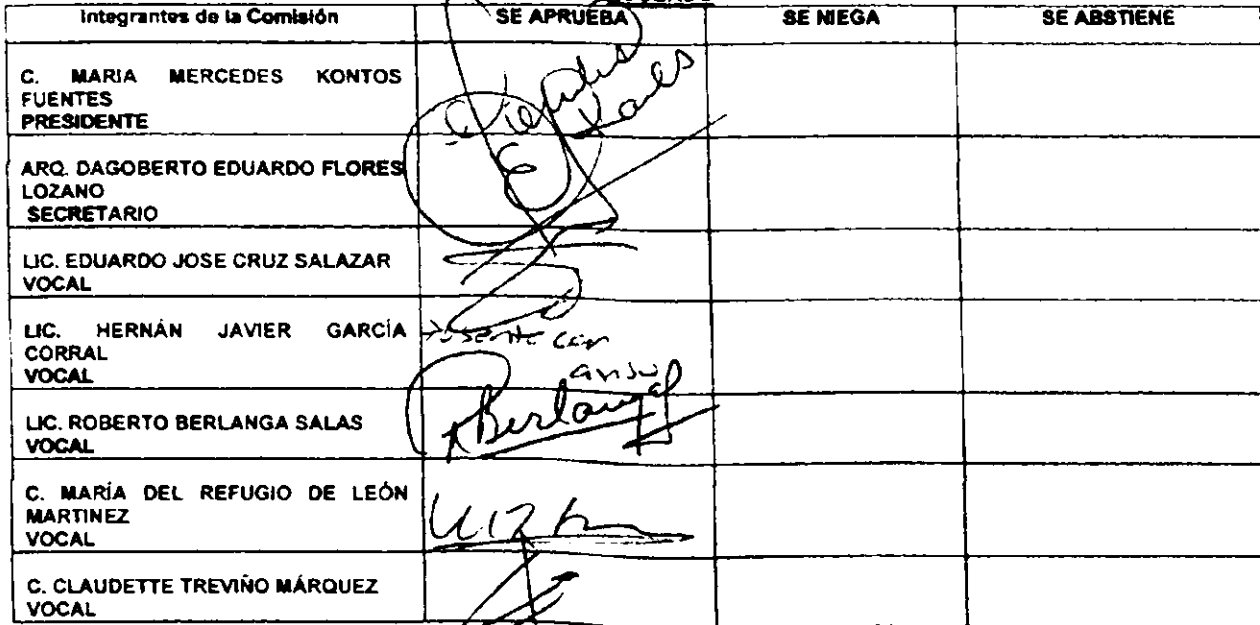 Integrantes de la Comisión SE APRUEBA SE NIEGA SE ABSTIENE
C. MARIA MERCEDES KONTOS
FUENTES
PRESIDENTE
ARQ. DAGOBERTO EDUARDO FLORES
LOZANO
SECRETARIO
LIC. EDUARDO JOSE CRUZ SALAZAR
VOCAL
LIC. HERNÁN JAVIER GARCÍA
CORRAL
VOCAL
LIC. ROBERTO BERLANGA SALAS
VOCAL
RBerlanga
C. MARÍA DEL REFUGIO DE LEÓN
MARTINEZ
VOCAL
C. CLAUDETTE TREVIÑO MÁRQUEZ
VOCAL